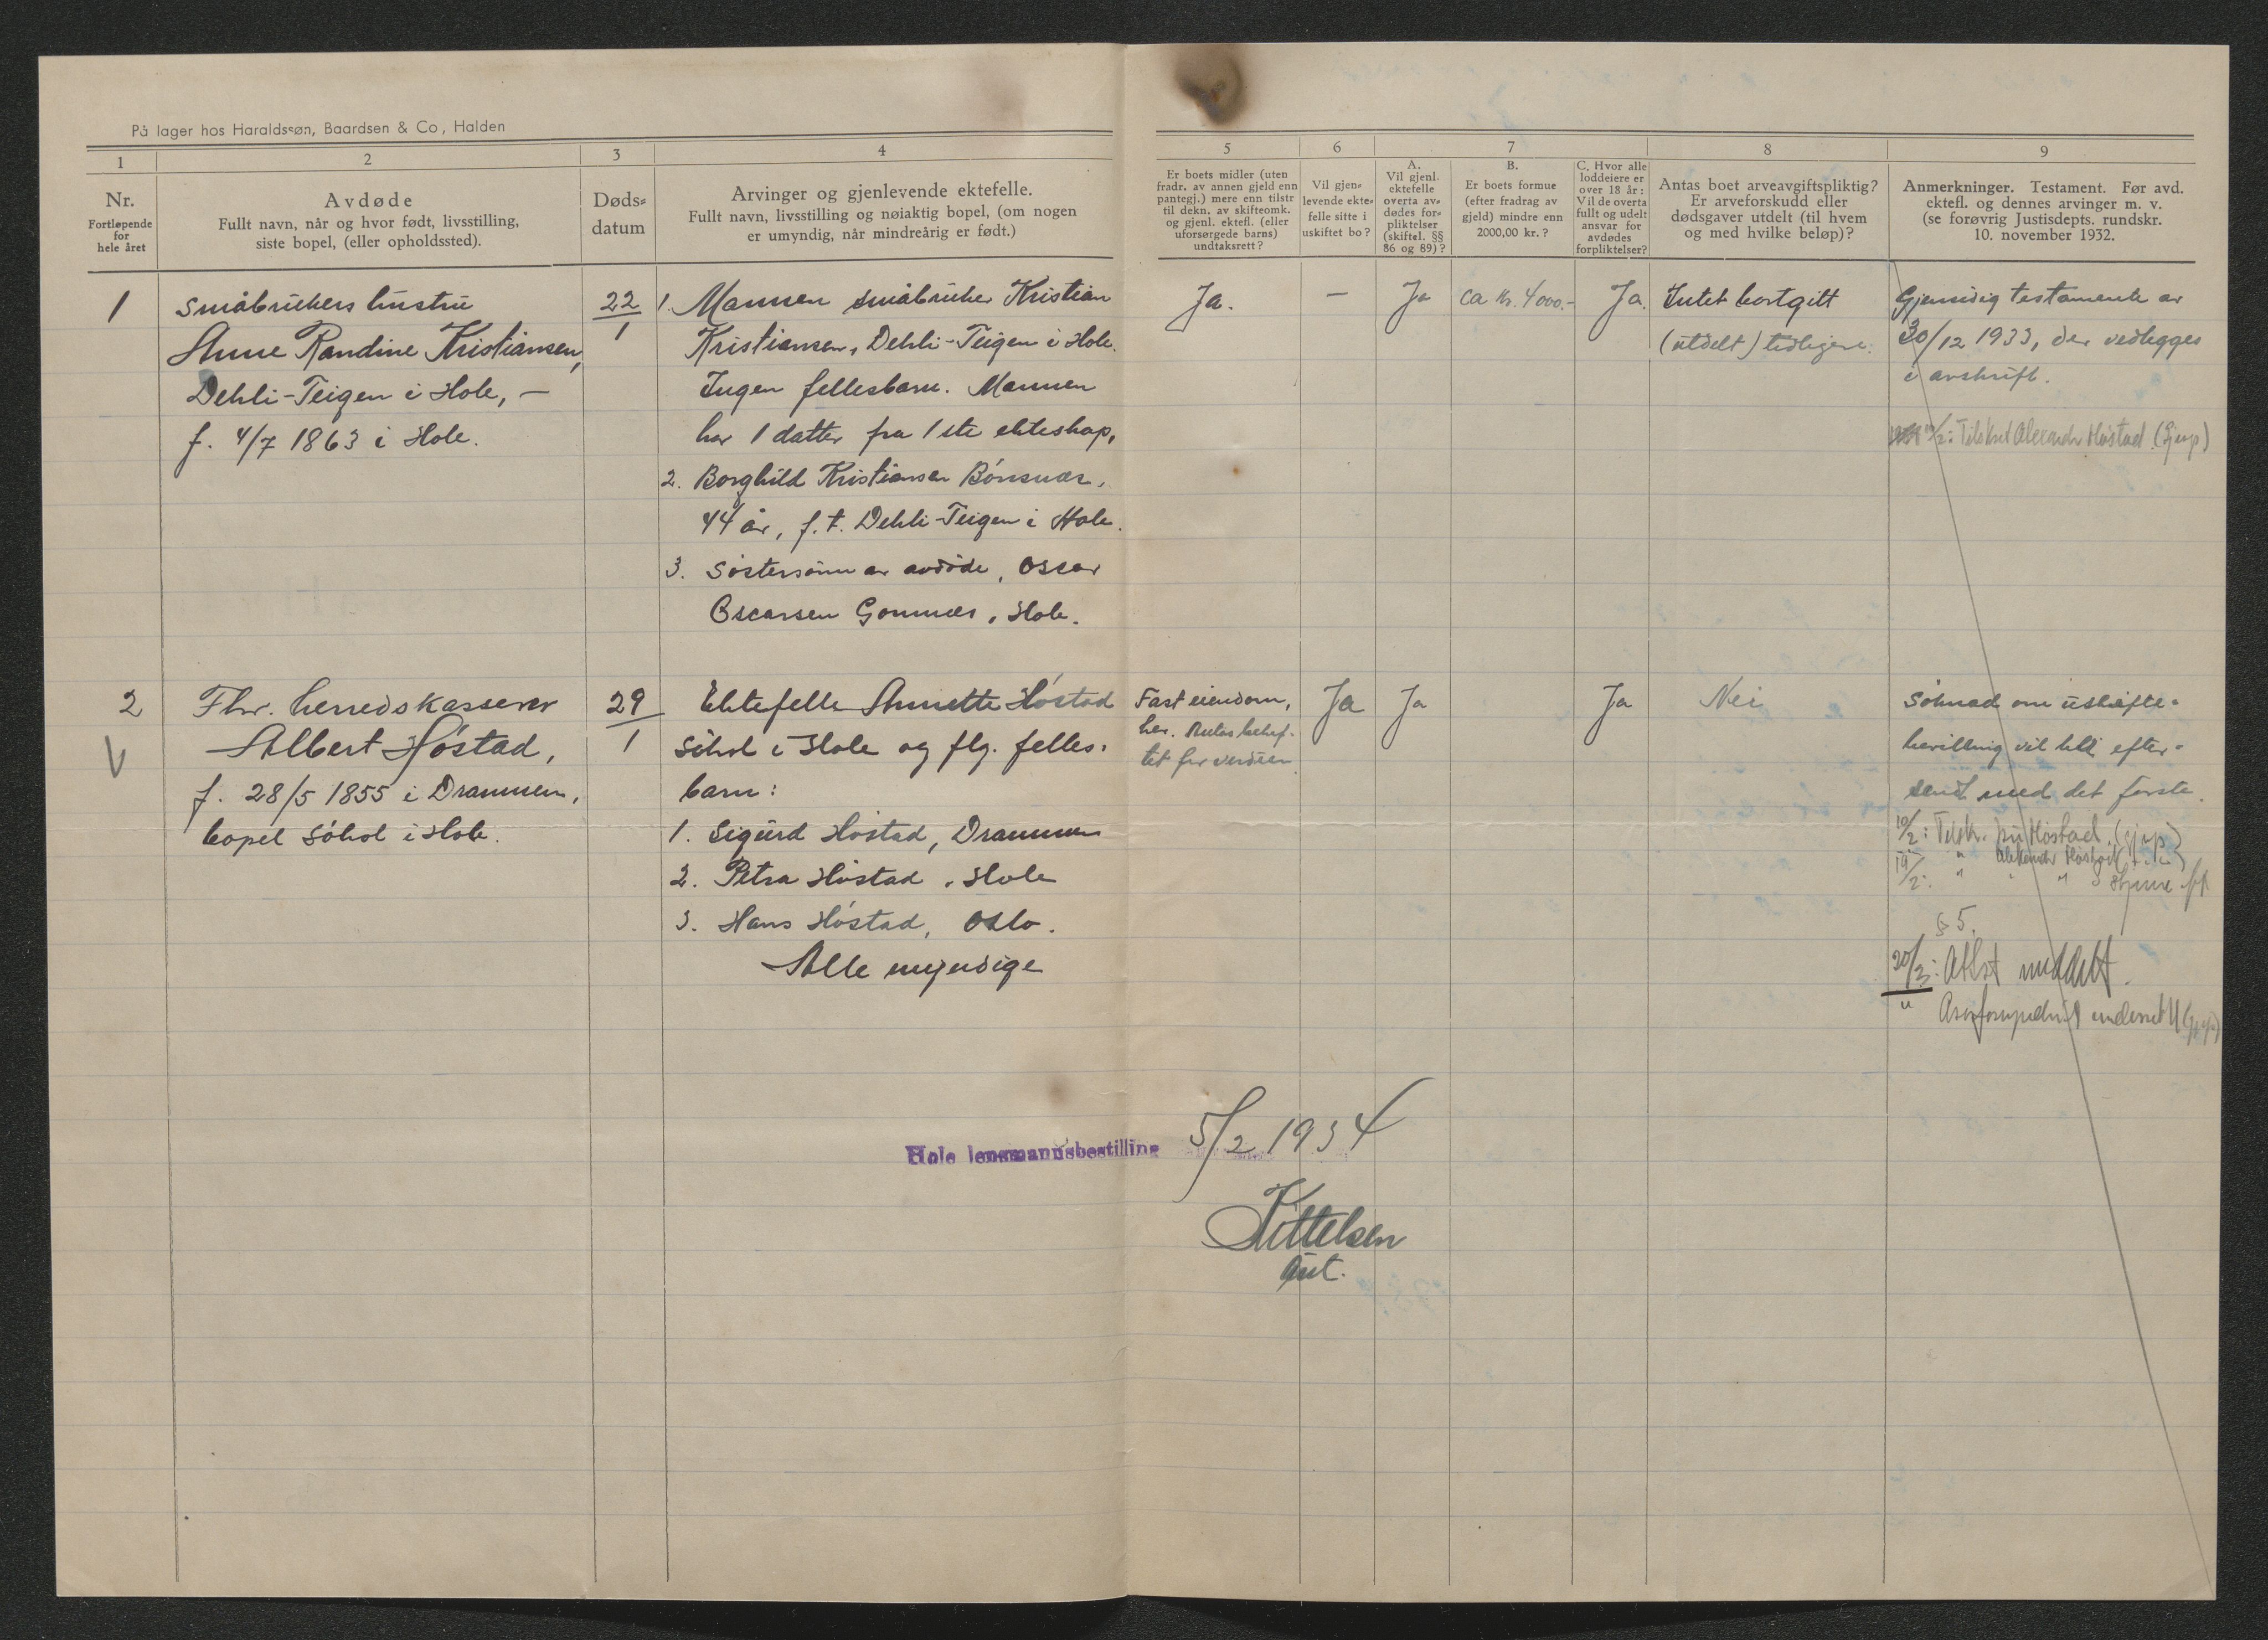 På lager hos Haraldssøn, Baardsen & Co, Halden
1
2
3
4
5
6
7
8
9
Nr.
Fortløpende
for
hele året
Avdøde
Fullt navn, når og hvor født, livsstilling,
siste bopel, (eller opholdssted).
Døds-
datum
Arvinger og gjenlevende ektefelle.
Fullt navn, livsstilling og nøiaktig bopel, (om nogen
er umyndig, når mindreårig er født.)
Er boets midler (uten
fradr. av annen gjeld enn
pantegj.) mere enn tilstr
til dekn. av skifteomk.
og gjenl. ektefl. (eller
uforsørgede barns)
undtaksrett?
Vil gjen-
levende ekte-
felle sitte i
uskiftet bo?
A.
Vil gjenl.
ektefelle
overta av-
dødes for-
pliktelser
(skiftel. §§
86 og 89)?
B.
Er boets formue
(efter fradrag av
gjeld) mindre enn
2000,00 kr.?
C. Hvor alle
loddeiere er
over 18 år:
Vil de overta
fullt og udelt
ansvar for
avdødes
forpliktelser?
Antas boet arveavgiftspliktig?
Er arveforskudd eller
dødsgaver utdelt (til hvem
og med hvilke beløp)?
Anmerkninger. Testament. Før avd.
ektefl. og dennes arvinger m. v.
(se forøvrig Justisdepts. rundskr.
10. november 1932.
1
Småbrukers hustru
Anne Randine Kristiansen,
Dehli-Teigen i Hole, -
f. 4/7 1863 i Hole.
22
1
1. Mannen småbruker Kristian
Kristiansen, Dehli-Teigen i Hole.
Ingen fellesbarn. Mannen
har 1 datter fra 1ste ekteskap,
2. Borghild Kristiansen Bönsnæs,
44 år, f.t. Dehli-Teigen i Hole.
3. Söstersönn av avdöde, Oscar
Oscarsen Gomnæs, Hole.
Ja.
-
Ja
ca kr. 4000.-
Ja.
Intet bortgitt
(utdelt) tidligere.
Gjensidig testamente av
30/12 1933, der vedlegges
i avskrift.
10/2: Tilskret Alexander Höstad (Gjenp)
2
V
Fhv. herredskasserer
Albert Höstad,
f. 28/5 1855 i Drammen,
bopel Söhol i Hole.
29
1
Ektefelle Annette Höstad
Söhol i Hole og flg. felles-
barn:
1. Sigurd Höstad, Drammen
2. Petra Höstad, Hole
3. Hans Höstad, Oslo.
Alle myndige
Fast eiendom,
behef-
tet for verdien
Ja
Ja
Ja
Nei
Söknad om uskifte-
bevilling vil bli efter-
sendt med det förste.
10/2: Tilskr. fru Höstad. (gjenp)
" Alexander Höstad
19/2: " " "
§ 5.
20/2: Attst meddelt.
" underret
Hole lensmannsbestilling
5/2 1934
Kittelsen
Aut.